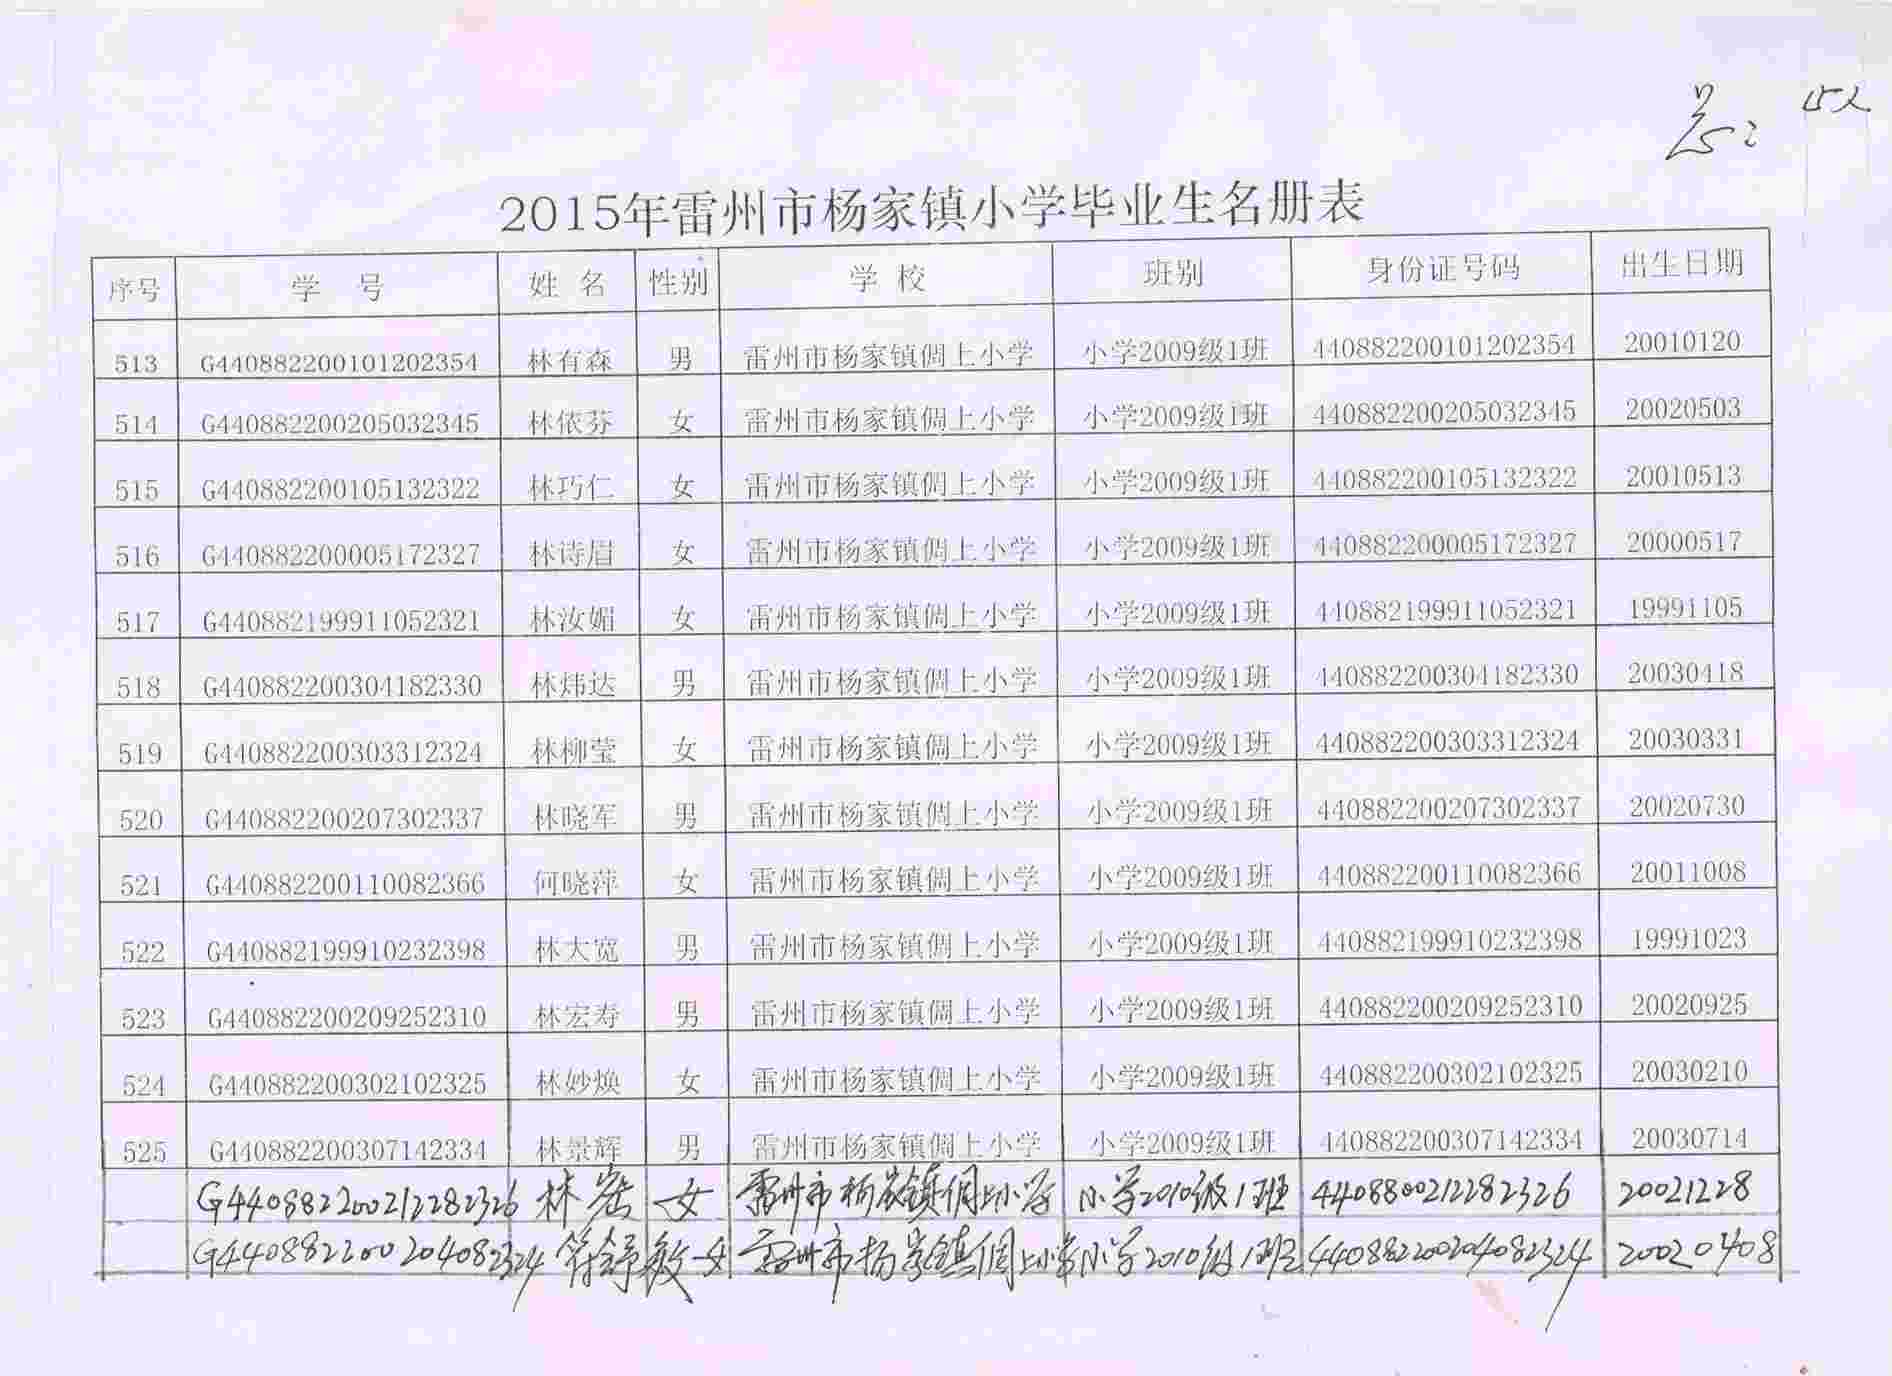 总: 15人
2015年雷州市杨家镇小学毕业生名册表
序号 学 号 姓 名 性别 学 校 班别 身份证号码 出生日期
513 G440882200101202354 林有森 男 雷州市杨家镇倜上小学 小学2009级1班 440882200101202354 20010120
514 G440882200205032345 林依芬 女 雷州市杨家镇倜上小学 小学2009级1班 440882200205032345 20020503
515 G440882200105132322 林巧仁 女 雷州市杨家镇倜上小学 小学2009级1班 440882200105132322 20010513
516 G440882200005172327 林诗眉 女 雷州市杨家镇倜上小学 小学2009级1班 440882200005172327 20000517
517 G440882199911052321 林汝媚 女 雷州市杨家镇倜上小学 小学2009级1班 440882199911052321 19991105
518 G440882200304182330 林炜达 男 雷州市杨家镇倜上小学 小学2009级1班 440882200304182330 20030418
519 G440882200303312324 林柳莹 女 雷州市杨家镇倜上小学 小学2009级1班 440882200303312324 20030331
520 G440882200207302337 林晓军 男 雷州市杨家镇倜上小学 小学2009级1班 440882200207302337 20020730
521 G440882200110082366 何晓萍 女 雷州市杨家镇倜上小学 小学2009级1班 440882200110082366 20011008
522 G440882199910232398 林大宽 男 雷州市杨家镇倜上小学 小学2009级1班 440882199910232398 19991023
523 G440882200209252310 林宏寿 男 雷州市杨家镇倜上小学 小学2009级1班 440882200209252310 20020925
524 G440882200302102325 林妙焕 女 雷州市杨家镇倜上小学 小学2009级1班 440882200302102325 20030210
525 G440882200307142334 林景辉 男 雷州市杨家镇倜上小学 小学2009级1班 440882200307142334 20030714
G440882200212282326 林 女 雷州市杨家镇倜上小学 小学2010级1班 4408800212282326 20021228
G440882200204082324 符 敏 女 雷州市杨家镇倜上小学 小学2010级1班 440882200204082324 20020408